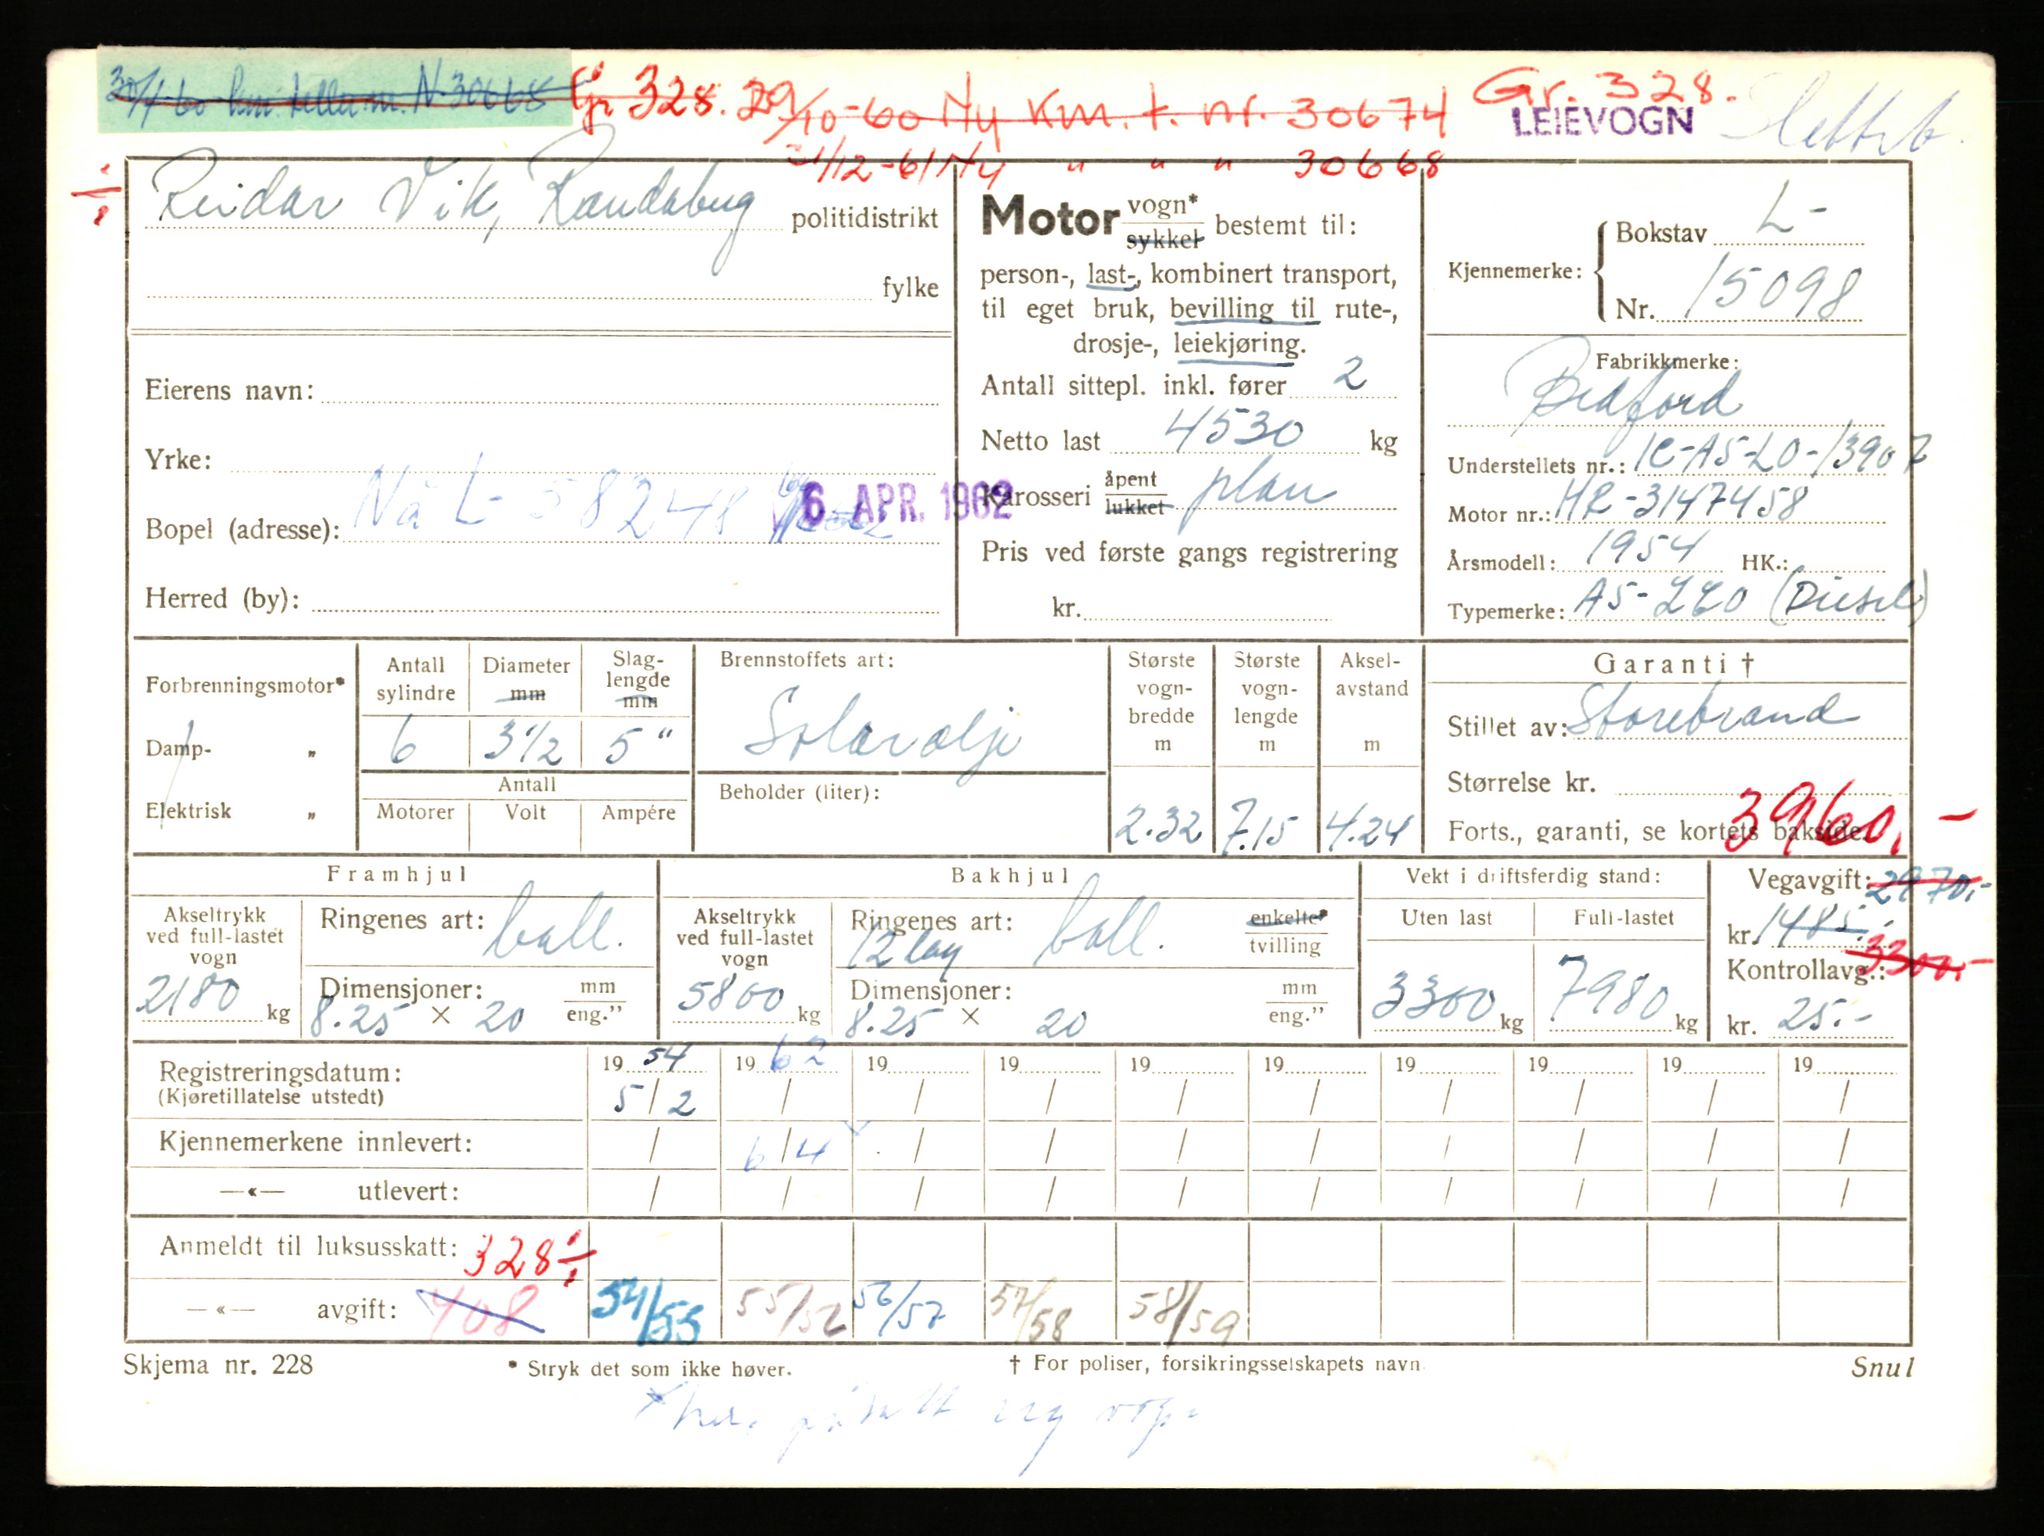 30/4-60 km. teller nr. N 30668 Gr 328. 29/10-60 Ny Km. t. nr. 30674 Gr. 328.
LEIEVOGN
31/12-61 Ny " " " 30668
Reidar Vik, Randaberg politidistrikt
fylke
Eierens navn:
Yrke:
Bopel (adresse): Nå L-58248 6. APR. 1962
Herred (by):
Motor vogn* sykkel bestemt til:
person-, last-, kombinert transport,
til eget bruk, bevilling til rute-,
drosje-, leiekjøring.
Antall sittepl. inkl. fører 2
Netto last 4530 kg
Karosseri åpent lukket plan
Pris ved første gangs registrering
kr.
Kjennemerke: Bokstav L-
Nr. 15098
Fabrikkmerke:
Bedford
Understellets nr.: IC-A5-LO-13907
Motor nr.: HR-3147458
Årsmodell: 1954 HK.:
Typemerke: A5-LCO (Diesel)
Forbrenningsmotor*
Damp- "
Elektrisk "
Antall sylindre 6
Diameter mm 3 1/2
Slag-lengde mm 5"
Antall
Motorer Volt Ampére
Brennstoffets art:
Solarolje
Beholder (liter):
Største vogn-bredde m 2.32
Største vogn-lengde m 7.15
Aksel-avstand m 4.24
Garanti †
Stillet av: Storebrand
Størrelse kr.
Forts., garanti, se kortets bakside.
3960,-
Framhjul
Akseltrykk ved full-lastet vogn 2180 kg
Ringenes art: ball.
Dimensjoner: mm eng."
8.25 × 20
Bakhjul
Akseltrykk ved full-lastet vogn 5800 kg
Ringenes art: 12 lag ball. enkelte* tvilling
Dimensjoner: mm eng."
8.25 × 20
Vekt i driftsferdig stand:
Uten last 3300 kg
Full-lastet 7980 kg
Vegavgift: 2970,-
kr. 1485.-
3300,-
Kontrollavg.:
kr. 25.-
Registreringsdatum: 19 54 19 62 19 19 19 19 19 19 19 19
(Kjøretillatelse utstedt) 5/2 / / / / / / / / /
Kjennemerkene innlevert: / 6/4 / / / / / / / /
—«— utlevert: / / / / / / / / / /
Anmeldt til luksusskatt: 328
—«— avgift: 408 54/55 55/56 56/57 57/58 58/59
Skjema nr. 228 * Stryk det som ikke høver. † For poliser, forsikringsselskapets navn Snul